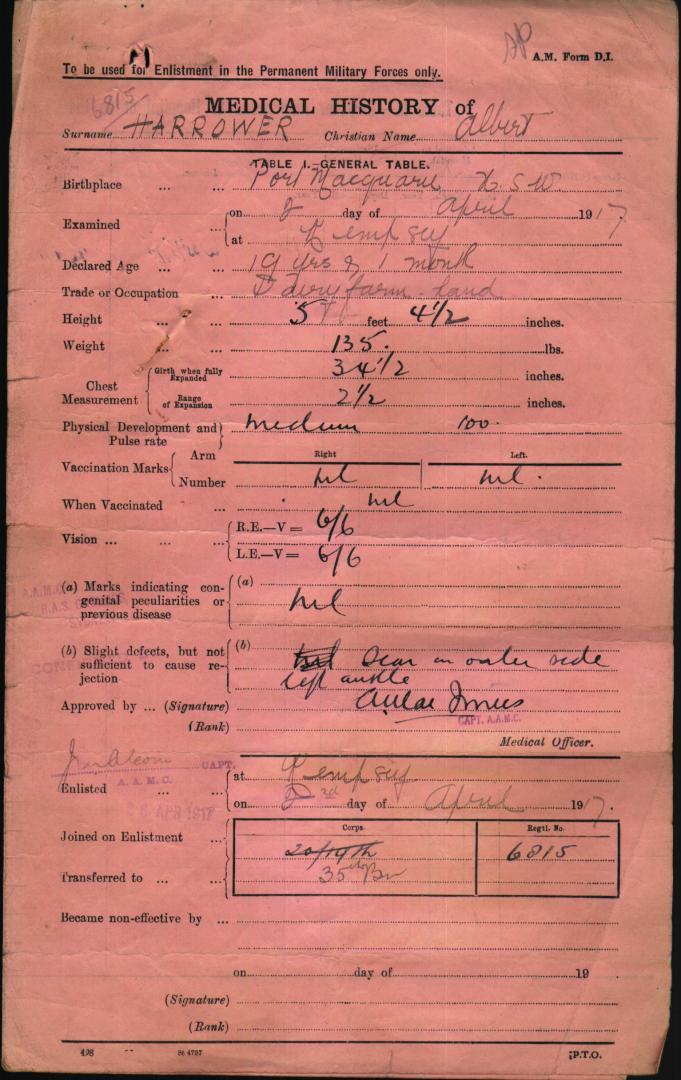 A.M. Form D.I.
To be used for Enlistment in the Permanent Military Forces only.
6815
MEDICAL HISTORY of
Surname HARROWER Christian Name Albert
TABLE I.—GENERAL TABLE.
Birthplace ... ... Port Macquarie N.S.W.
Examined ... on 2 day of April 1917
at Kempsey
Declared Age ... ... 19 yrs & 1 month
Trade or Occupation ... Dairy farm hand
Height ... ... 5 feet 4 1/2 inches.
Weight ... ... 135. lbs.
Chest Measurement Girth when fully Expanded 34 1/2 inches
Range of Expansion 2 1/2 inches
Physical Development and Pulse rate medium 100
Arm Right Left.
Vaccination Marks Number nil nil.
When Vaccinated ... nil
Vision ... ... R.E.—V = 6/6
L.E.—V = 6/6
(a) Marks indicating congenital peculiarities or previous disease (a) nil
(b) Slight defects, but not sufficient to cause rejection (b) Scar on outer side
left ankle
Approved by ... (Signature) Innes
(Rank) CAPT. A.A.M.C.
Medical Officer.
CAPT.
A.A.M.C.
APR 1917
Enlisted ... ... at Kempsey
on 2nd day of April 1917.
Corps. Regtl. No.
Joined on Enlistment ... 20/19th 6815
Transferred to ... ... 35th Bn
Became non-effective by ...
on day of 19
(Signature)
(Rank)
498 86 4797 P.T.O.